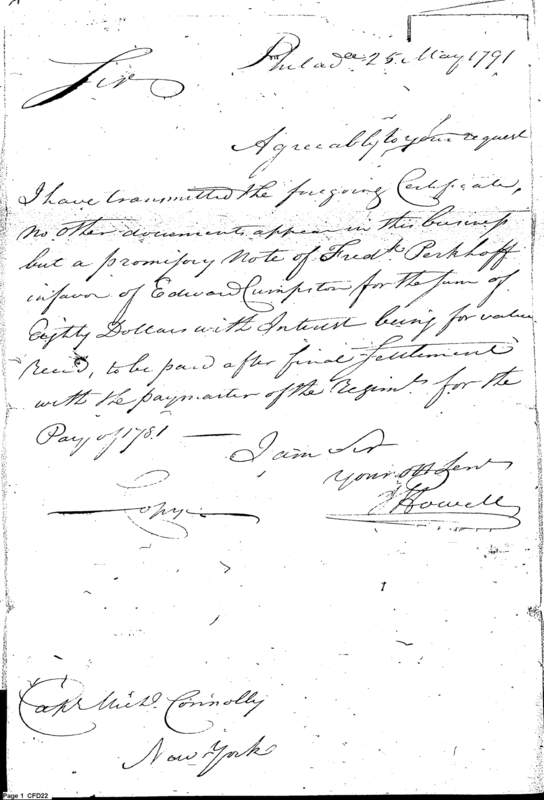 Philada 25 May 1791
Sir
Agreeably to your request
I have transmitted the foregoing Certificate,
no other documents appear in this business
but a promissory Note of Fredk. Perkhoff
in favor of Edward Cumpston for the sum of
Eighty Dollars with Interest being for value
Receivd, to be paid after final Settlement
with the paymaster of the Regimts for the
Pay of 1781 —
I am Sir
Your Obt Servt
J Howell
Copy
Capt. Michl. Connolly
New York
Page 1 CFD22